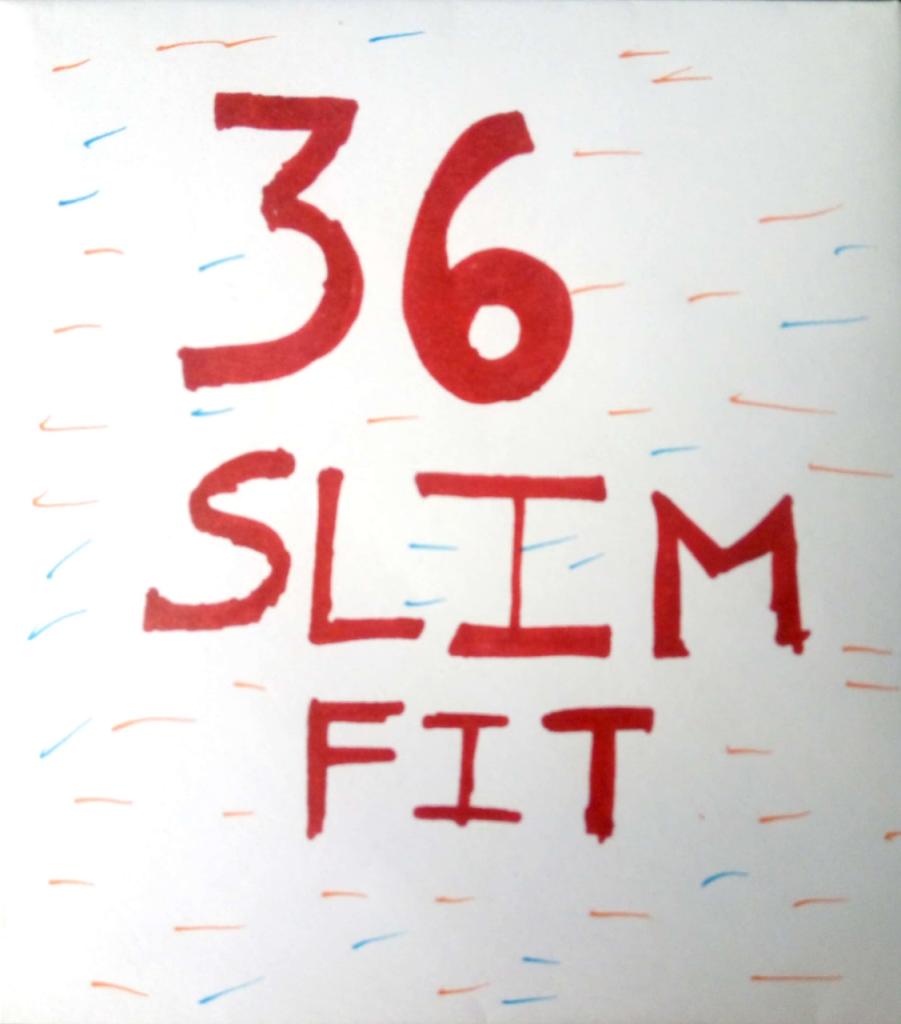 36
SLIM
FIT